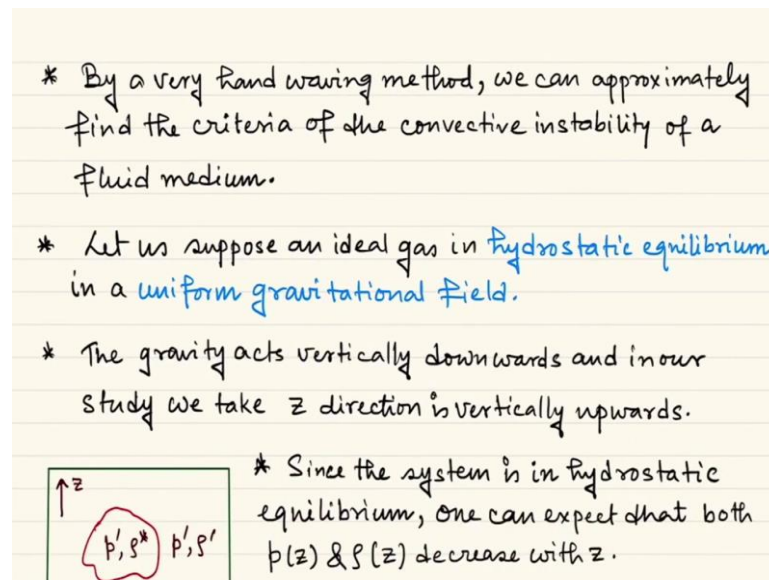 * By a very hand waving method, we can approximately
find the criteria of the convective instability of a
fluid medium.
* Let us suppose an ideal gas in hydrostatic equilibrium
in a uniform gravitational field.
* The gravity acts vertically downwards and in our
study we take z direction is vertically upwards.
* Since the system is in hydrostatic
equilibrium, one can expect that both
p(z) & ρ(z) decrease with z.
↑z
p', ρ* p', ρ'